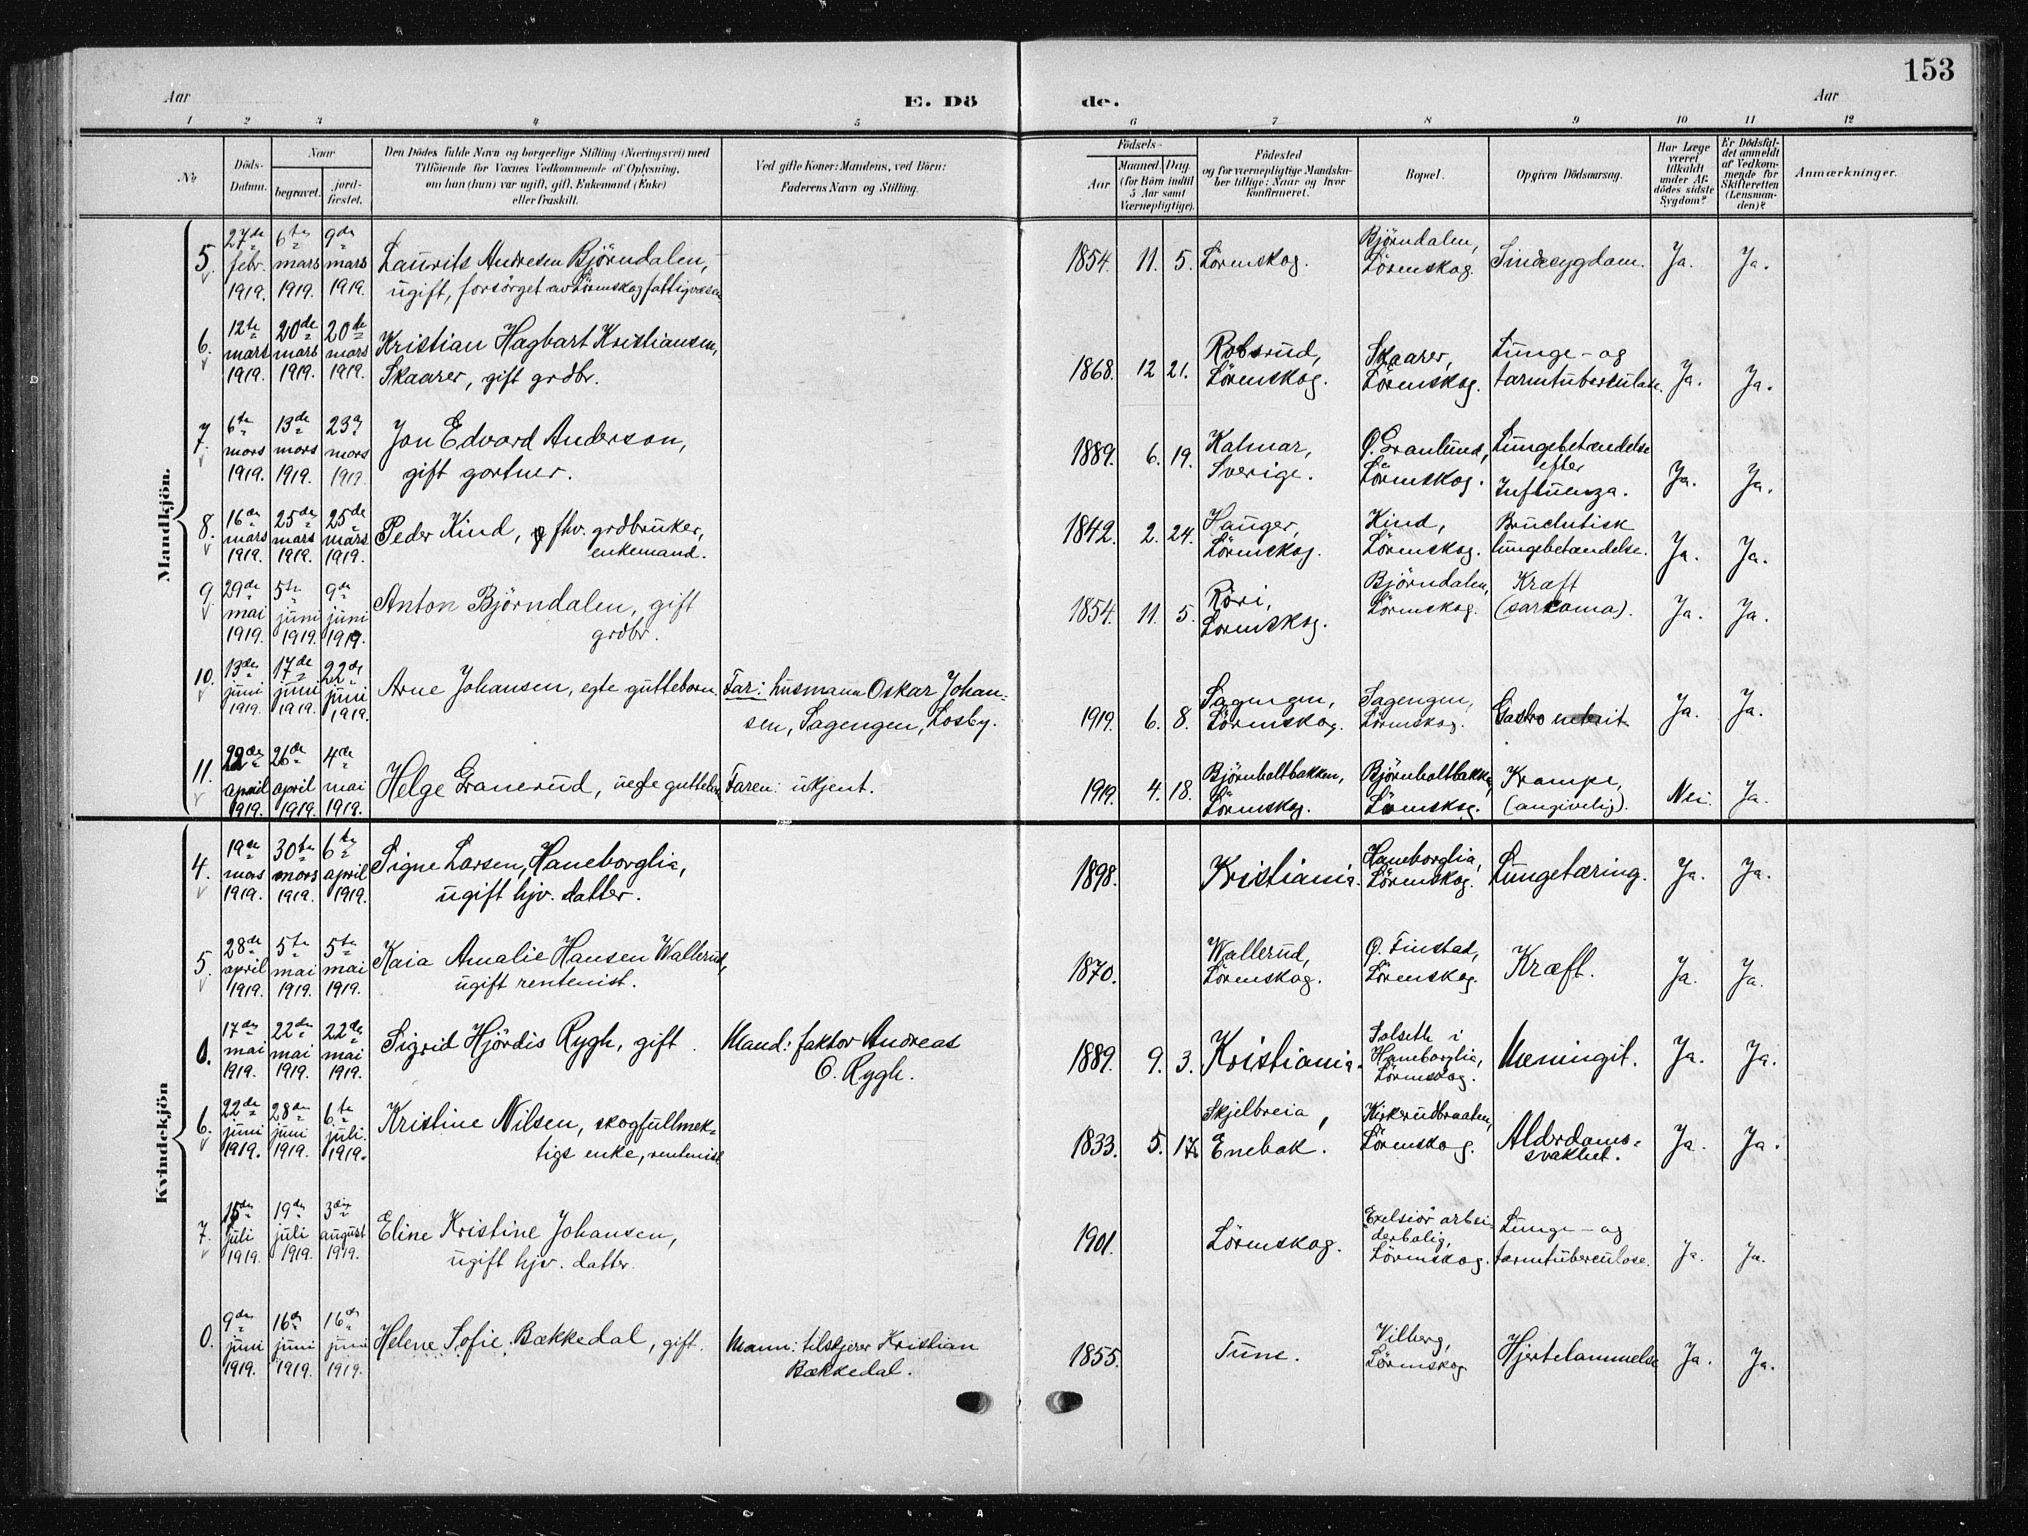 153
Aar
E. Dö
de.
Aar
1 2 3 4 5 6 7 8 9 10 11 12
No
Döds-
Datum.
Naar
begravet.
jord-
fæstet.
Den Dödes fulde Navn og borgerlige Stilling (Næringsvei) med
Tilföiende for Voxnes Vedkommende af Oplysning,
om han (hun) var ugift, gift, Enkemand (Enke)
eller fraskilt.
Ved gifte Koner: Mandens, ved Börn:
Faderens Navn og Stilling.
Födsels-
Aar
Maaned.
Dag
(for Börn indtil
5 Aar samt
Værnepligtige).
Födested
og for værnepligtige Mandska-
ber tillige: Naar og hvor
konfirmeret.
Bopæl.
Opgiven Dödsaarsag.
Har Læge
været
tilkaldt
under Af-
dödes sidste
Sygdom?
Er Dödsfal-
det anmeldt
af Vedkom-
mende for
Skifteretten
(Lensman-
den)?
Anmærkninger.
Mandkjön.
5.
27de febr. 1919.
6te mars 1919.
9de mars 1919.
Laurits Andresen Björndalen,
ugift, forsörget av Lörenskog fattigvæsen
1854. 11. 5.
Lörenskog.
Björndalen,
Lörenskog.
Sindssygdom.
Ja.
Ja.
6.
12te mars 1919.
20de mars 1919.
20de mars 1919.
Kristian Hagbart Kristiansen,
Skaarer, gift grdbr.
1868. 12 21.
Robsrud,
Lörenskog.
Skaarer,
Lörenskog.
Lunge- og
tarmtuberculose.
Ja.
Ja.
7.
6te mars 1919.
13de mars 1919.
23de mars 1919.
Jon Edvard Anderson,
gift gartner.
1889. 6. 19.
Kalmar,
Sverige.
Ö. Granlund,
Lörenskog.
Lungebetændelse
efter
Influenza.
Ja.
Ja.
8.
16de mars 1919.
25de mars 1919.
25de mars 1919.
Peder Kind, fhv. grdbruker,
enkemand.
1842. 2. 24.
Hauger,
Lörenskog.
Kind,
Lörenskog.
Bruchitisk
lungebetændelse.
Ja.
Ja.
9
29de mai 1919.
5te juni 1919.
9de juni 1919.
Anton Björndalen, gift
grdbr.
1854. 11. 5.
Röri,
Lörenskog.
Björndalen,
Lörenskog.
Kræft
(sarkoma).
Ja.
Ja.
10.
13de juni 1919.
17de juni 1919.
22de juni 1919.
Arne Johansen, egte guttebarn.
Far: husmann Oskar Johan-
sen, Sagengen, Losby.
1919. 6. 8.
Sagengen,
Lörenskog.
Sagengen,
Lörenskog.
Gastro enterit
Ja.
Ja.
11.
22de april 1919.
26de april 1919.
4de mai 1919.
Helge Granerud, uegte guttebarn
Faren: ukjent.
1919. 4. 18.
Björnholtbakken,
Lörenskog.
Björnholtbakken,
Lörenskog.
Krampe,
(angivelig).
Nei.
Ja.
Kvindekjön
4.
19de mars 1919.
30te mars 1919.
6te april 1919.
Signe Larsen, Haneborglia,
ugift hjv. datter.
1898.
Kristiania.
Haneborglia,
Lörenskog.
Lungetæring.
Ja.
Ja.
5.
28de april 1919.
5te mai 1919.
5te mai 1919.
Kaia Amalie Hansen Wallerud,
ugift rentenist.
1870.
Wallerud,
Lörenskog.
Ö. Finstad,
Lörenskog.
Kræft.
Ja.
Ja.
0.
17de mai 1919.
22de mai 1919.
22de mai 1919.
Sigrid Hjördis Rygh, gift.
Mand: faktor Andreas
O. Rygh.
1889. 9. 3.
Kristiania.
Solseth i
Haneborglia,
Lörenskog.
Meningit.
Ja.
Ja.
6.
22de juni 1919.
28de juni 1919.
6te juli. 1919.
Kristine Nilsen, skogfullmek-
tigs enke, rentenist
1833. 5. 17.
Skjelbreia,
Enebak.
Kirkerudbraaten,
Lörenskog.
Alderdoms-
svakhet.
Ja.
Ja.
7.
15de juli 1919.
19de juli 1919.
3die august 1919.
Eline Kristine Johansen,
ugift hjv. datter.
1901.
Lörenskog.
"Exelsiör" arbei-
derbolig,
Lörenskog.
Lunge- og
tarmtuberculose.
Ja.
Ja.
0.
9de juni 1919.
16de juni 1919.
16de juni 1919.
Helene Sofie Bækkedal, gift.
Mann: tilskjerer Kristian
Bækkedal.
1855.
Tune.
Vilberg,
Lörenskog
Hjertelammelse
Ja.
Ja.